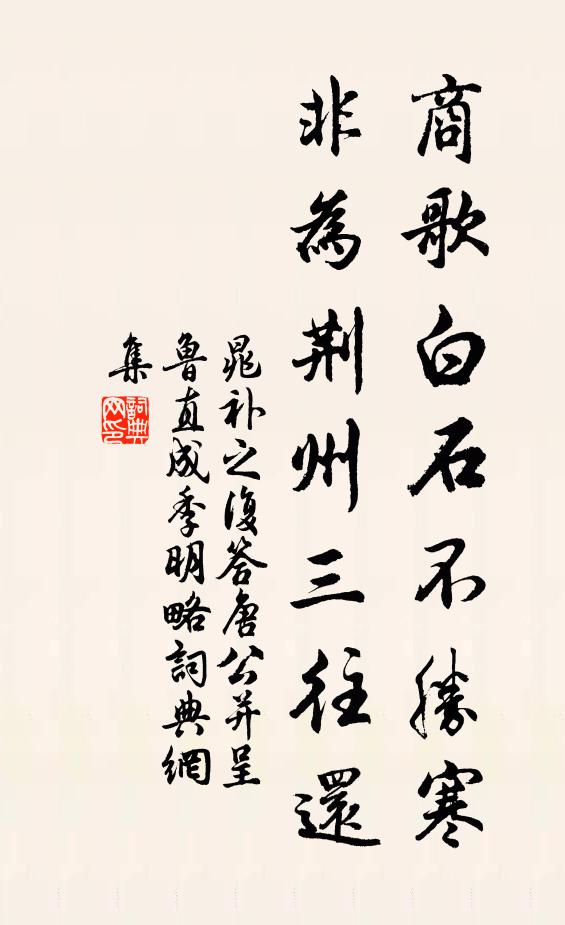 商歌白石不勝寒
非為荆州三往還
晁補之復答唐公并呈
魯直成季明略詞典網
集
詞典
网印